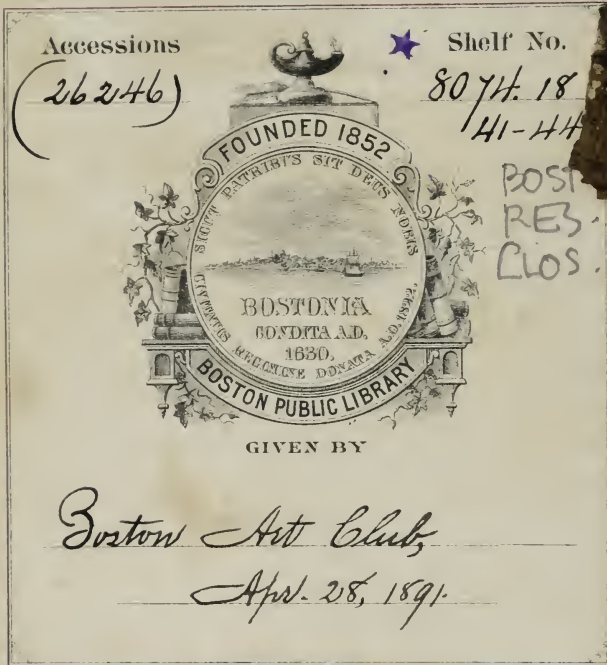 Accessions
(26246)
Shelf No.
8074.18
41-44
BOST
RES.
CLOS.
FOUNDED 1852
SICUT PATRIBUS SIT DEUS NOBIS
BOSTONIA
CONDITA A.D.
1630.
CIVITATIS REGIMINE DONATA A.D. 1822.
BOSTON PUBLIC LIBRARY
GIVEN BY
Boston Art Club,
Apr. 28, 1891.